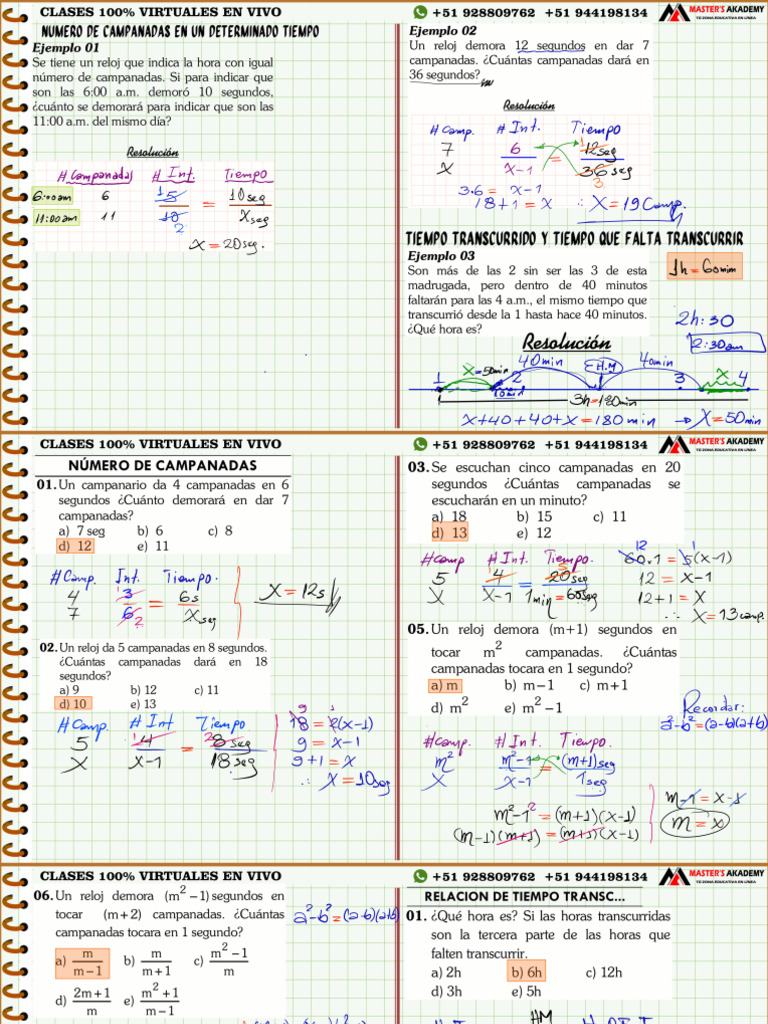 CLASES 100% VIRTUALES EN VIVO
+51 928809762 +51 944198134
MASTER'S AKADEMY
TU ZONA EDUCATIVA EN LÍNEA
NUMERO DE CAMPANADAS EN UN DETERMINADO TIEMPO
Ejemplo 01
Se tiene un reloj que indica la hora con igual
número de campanadas. Si para indicar que
son las 6:00 a.m. demoró 10 segundos,
¿cuánto se demorará para indicar que son las
11:00 a.m. del mismo día?
Resolución
# Campanadas # Int. Tiempo
6:00am 6 5 1 = 10seg
11:00am 11 10 2 x seg
x = 20seg.
Ejemplo 02
Un reloj demora 12 segundos en dar 7
campanadas. ¿Cuántas campanadas dará en
36 segundos?
Resolución
# Camp. # Int. Tiempo
7 6 = 12seg 1
x x-1 36seg 3
3.6 = x-1
18+1 = x ∴ x = 19 Camp.
TIEMPO TRANSCURRIDO Y TIEMPO QUE FALTA TRANSCURRIR
Ejemplo 03
1h = 60min
Son más de las 2 sin ser las 3 de esta
madrugada, pero dentro de 40 minutos
faltarán para las 4 a.m., el mismo tiempo que
transcurrió desde la 1 hasta hace 40 minutos.
¿Qué hora es?
2h:30
2:30am
Resolución
x=50min 40min E.H.M 40min x
1 2 3 4
10min
3h=180min
x+40+40+x=180min → x=50min
CLASES 100% VIRTUALES EN VIVO
+51 928809762 +51 944198134
MASTER'S AKADEMY
TU ZONA EDUCATIVA EN LÍNEA
NÚMERO DE CAMPANADAS
01. Un campanario da 4 campanadas en 6
segundos ¿Cuánto demorará en dar 7
campanadas?
a) 7 seg b) 6 c) 8
d) 12 e) 11
# Camp. Int. Tiempo.
4 3 = 6s
7 6 2 x seg
x = 12s
02. Un reloj da 5 campanadas en 8 segundos.
¿Cuántas campanadas dará en 18
segundos?
a) 9 b) 12 c) 11
d) 10 e) 13
# Camp. # Int Tiempo
5 4 1 = 8seg 2
x x-1 18seg
9 1
18 = 2(x-1)
9 = x-1
9+1 = x
∴ x = 10seg
03. Se escuchan cinco campanadas en 20
segundos ¿Cuántas campanadas se
escucharán en un minuto?
a) 18 b) 15 c) 11
d) 13 e) 12
# Camp # Int. Tiempo.
5 4 = 20seg 5
x x-1 1min=60seg
12 1
60.1 = 5(x-1)
12 = x-1
12+1 = x
∴ x = 13camp.
05. Un reloj demora (m+1) segundos en
tocar m² campanadas. ¿Cuántas
campanadas tocara en 1 segundo?
a) m b) m−1 c) m+1
d) m² e) m²−1
Recordar:
a²-b²=(a-b)(a+b)
# Camp. # Int. Tiempo.
m² m²-1 = (m+1)seg
x x-1 1seg
m²-1² = (m+1)(x-1)
(m-1)(m+1) = (m+1)(x-1)
m-1 = x-1
m = x
CLASES 100% VIRTUALES EN VIVO
+51 928809762 +51 944198134
MASTER'S AKADEMY
TU ZONA EDUCATIVA EN LÍNEA
06. Un reloj demora (m²−1) segundos en
tocar (m+2) campanadas. ¿Cuántas
campanadas tocara en 1 segundo?
a²-b²=(a-b)(a+b)
a) m/(m−1) b) m/(m+1) c) (m²−1)/m
d) (2m+1)/m e) (m²+1)/(m−1)
RELACION DE TIEMPO TRANSC...
01. ¿Qué hora es? Si las horas transcurridas
son la tercera parte de las horas que
falten transcurrir.
a) 2h b) 6h c) 12h
d) 3h e) 5h
HM